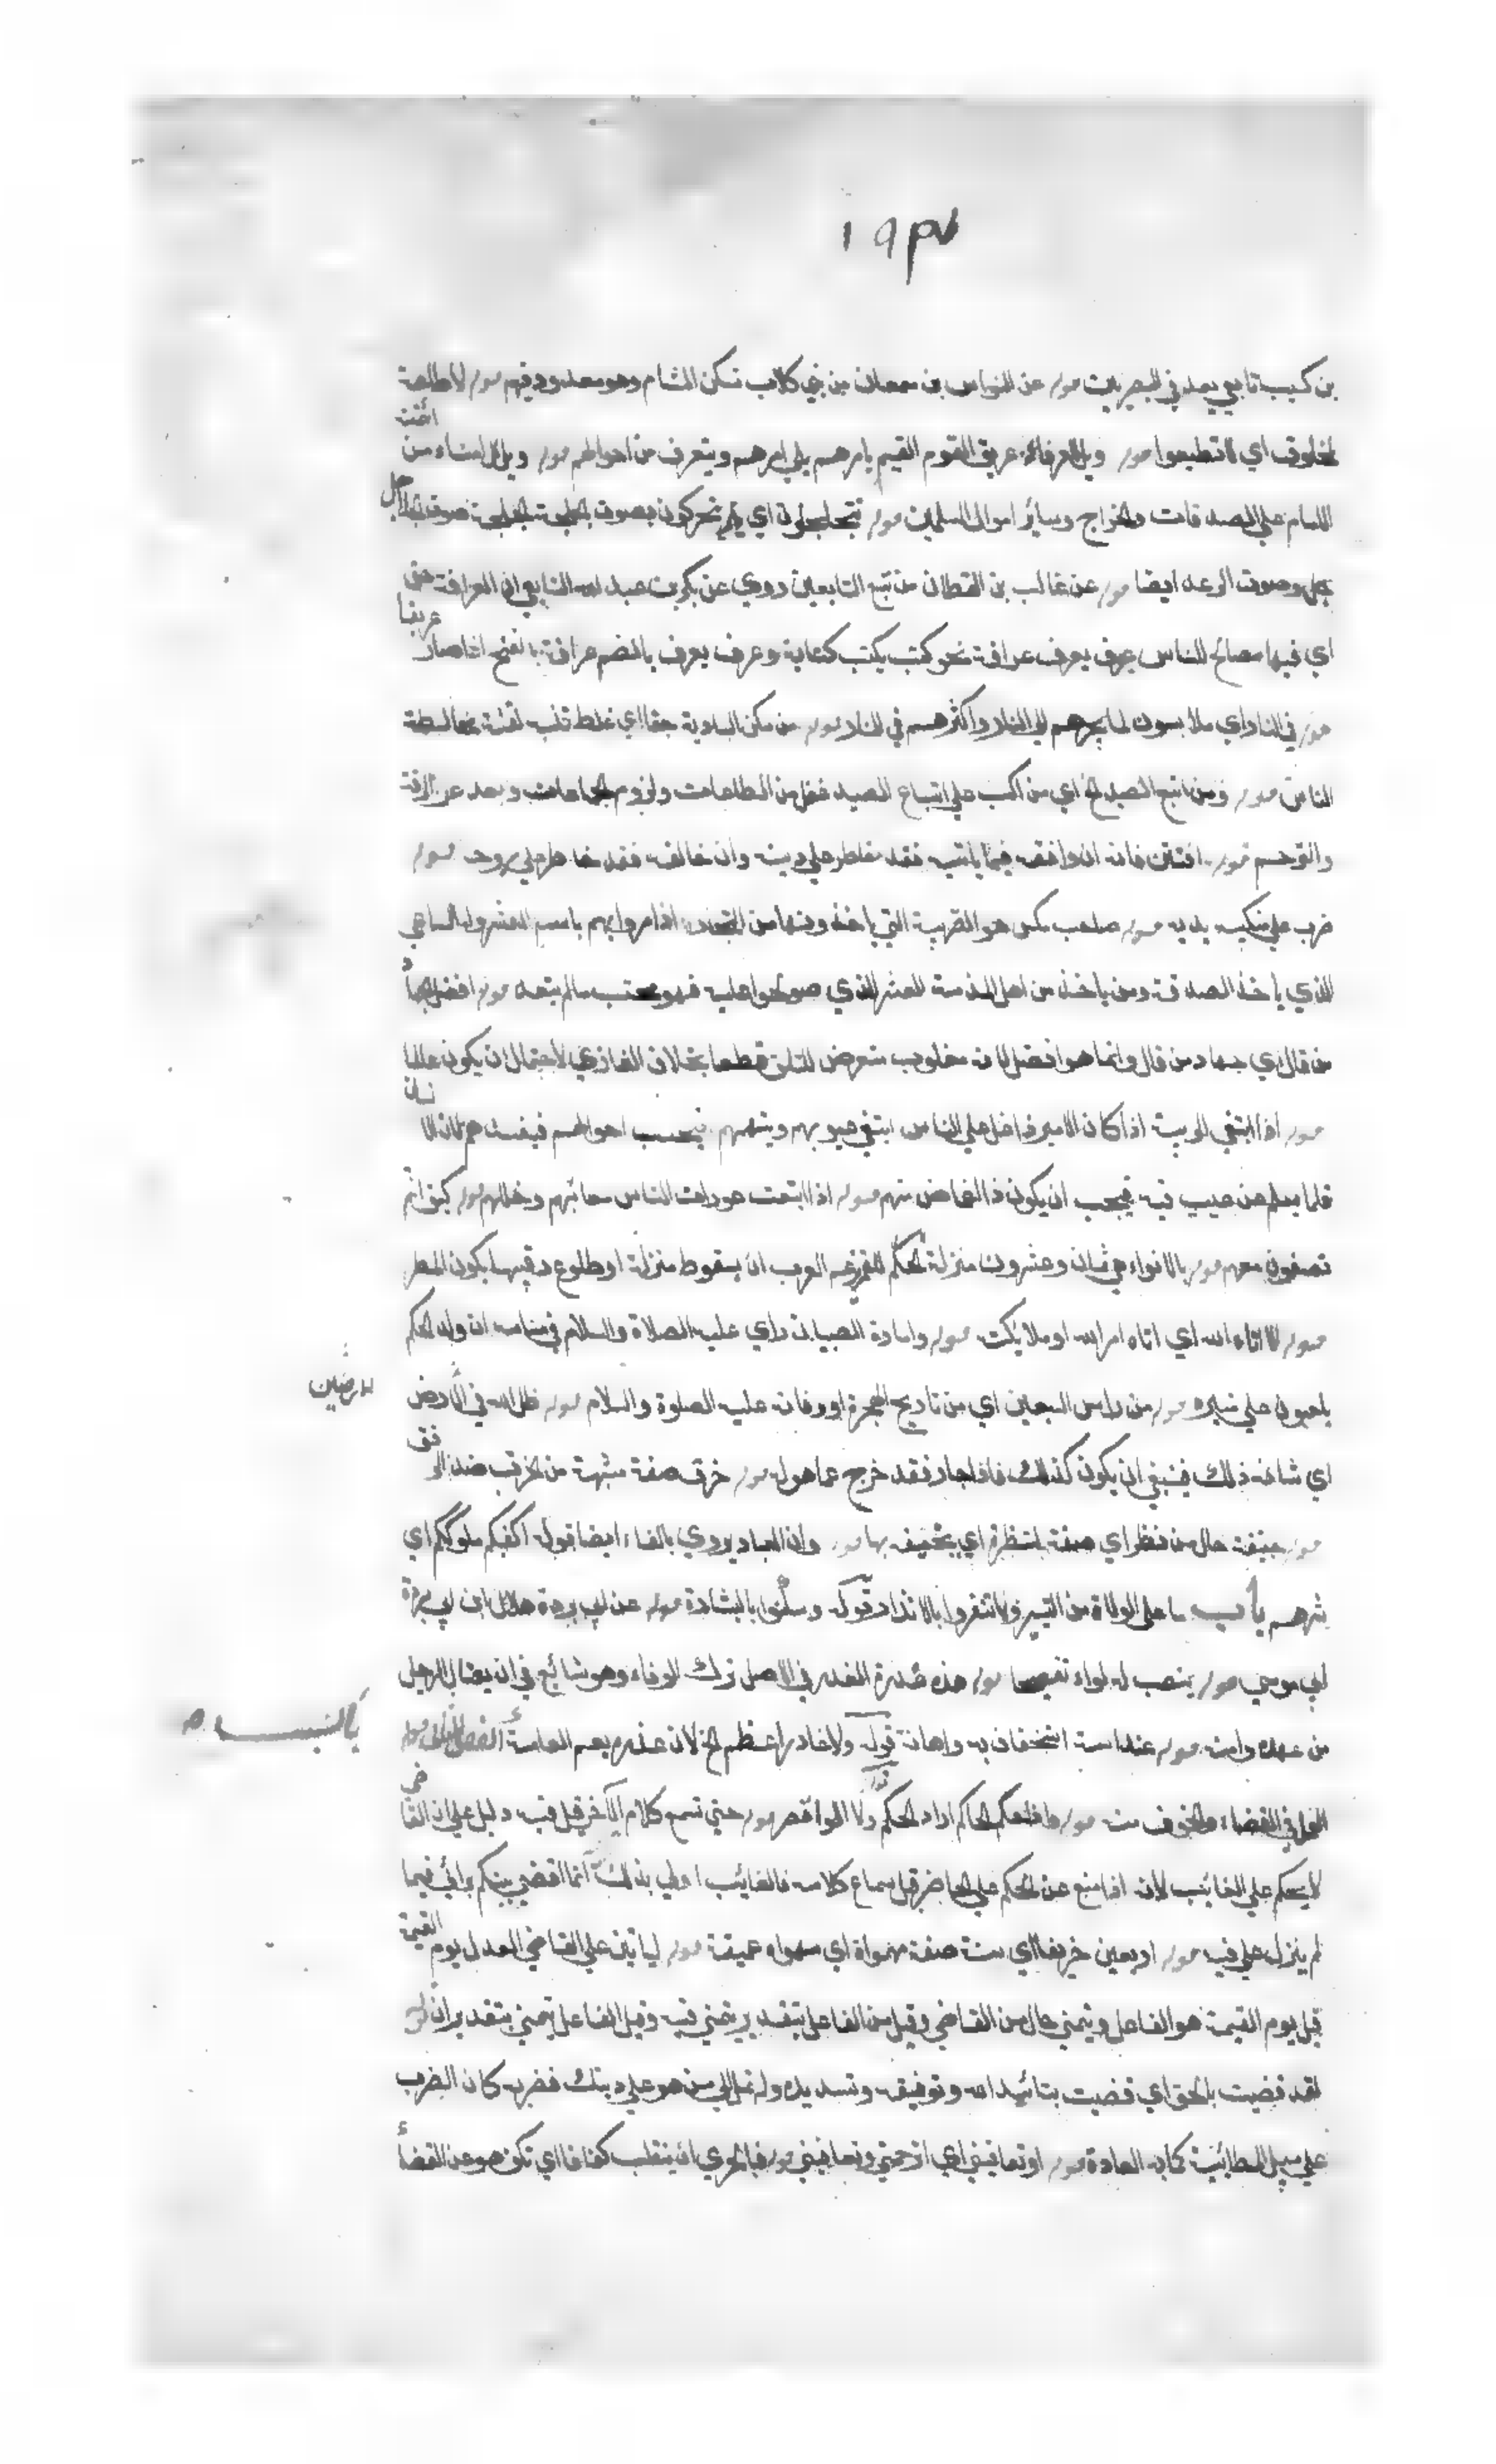 ١٩٣٧
بن كسب تابعي يعد في البصريين قوله عن النواس بن سمعان من بني كلاب سكن الشام وهو معدود فيهم قوله لا طاعة
لمخلوق اي لا تطيعوا قوله ويل للعرفاء عريف القوم القيم بامرهم يلي امرهم ويتعرف من احوالهم قوله ويل للامناء من ائتمنه
الامام على الصدقات والخراج وسائر اموال المسلمين قوله يتجلجلون اي يتحركون بصوت الجلجلة صوت
وصوت الرعد ايضا قوله عن غالب بن القطان من تبع التابعين روى عن بكر بن عبد الله التابعي ان العرافة حق
اي فيها مصالح للناس عرف يعرف عرافة نحو كتب يكتب كتابة وعرف يعرف بالضم عرافة بالفتح اذا صار عريفا
قوله في النار اي ملابسون لما يجرهم الى النار واكثرهم في النار قوله من سكن البادية جفا اي غلظ قلبه لقلة مخالطة
الناس قوله ومن اتبع الصيد الخ اي من اكب على اتباع الصيد غفل من الطاعات ولزوم الجماعات وبعد عن الرقة
والترحم قوله افتتن فانه ان وافقه فيما ياتيه فقد خاطر على دينه وان خالفه فقد خاطر على روحه قوله
ضرب على منكبيه يديه قوله صاحب مكس هو الضريبة التي ياخذونها من التجار اذا مروا بهم باسم العشر واما الساعي
الذي ياخذ الصدقة ومن ياخذ من اهل الذمة العشر الذي صولحوا عليه فهو محتسب ما لم يتعد قوله افضل الجهاد
من قال اي جهاد من قال وانما هو افضل لانه مغلوب متعرض للتلف قطعا بخلاف الغازي لاحتمال ان يكون غالبا
قوله اذا ابتغى الريبة اذا كان الامير داخل على الناس ابتغى عيوبهم ويتهمهم احوالهم فان الانسان
قلما يسلم من عيب فيه فيجب ان يكون ذا اغماض منهم قوله اذا اتبعت عورات الناس معائبهم وخللهم قوله كيف انتم
تصنعون معهم قوله بالانواء هي ثمان وعشرون منزلة للقمر زعم العرب ان بسقوط منزلة او طلوع رقيبها يكون المطر
قوله الا اتاه الله اي اتاه امر الله او ملائكته قوله وامارة الصبيان راي عليه الصلاة والسلام في منامه ان ولد الحكم
يلعبون على منبره قوله من راس السبعين اي من تاريخ الهجرة او وفاته عليه الصلوة والسلام قوله ظل الله في الارض
الارضين
اي شانه ذلك فينبغي ان يكون كذلك فاذا جار فقد خرج عما هو له قوله خرق صفة مشبهة من الخرق ضد الرفق
قوله يخيفه حال من نظر اي صفة نظرة اي يخيفه بها قوله وان العباد يروي بالفاء ايضا قوله اكفيكم ملوككم اي
شرهم باب ما على الولاة من التيسير ولا تنفروا بالانذار قوله وسكنوا بالبشارة قوله عن ابي بردة هلال ابن ابي بردة
ابي موسى قوله ينصب له لواء قوله هذه غدرة الغدر في الاصل ترك الوفاء وهو شائع في ان يغتال الرجل
من عهده وامنه قوله عند استه استخفاف به واهانة قوله ولا غادر اعظم الخ لان غدره يعم العامة الفصل الثاني قوله
بالنسبـــة
العمل في القضاء والخوف منه قوله حاكم الحاكم اراد الحكم قوله حتى تسمع كلام الآخر قيل فيه دليل على ان القاضي
لا يحكم على الغائب لانه اذا منع عن الحكم على الحاضر قبل سماع كلامه فالغائب اولى بذلك انما اقضي بينكم برأي فيما
لم ينزل علي فيه قوله اربعين خريفا اي سنة صفة مهواة اي مهواه عميقة قوله لياتين على القاضي العدل يوم القيمة
قيل يوم القيمة هو الفاعل ويتمنى حال من القاضي وقيل من الفاعل بتقدير يتمنى فيه وقيل الفاعل يتمنى بتقدير ان قوله
لقد قضيت بالحق اي قضيت بتائيد الله وتوفيقه وتسديده ولم تمل الى من هو على دينك فضربه كان الضرب
على سبيل المطائبة كما به العادة قوله او تعافيني اي ترحمني وتعافيني قوله فبالحري ان ينقلب كفافا اي تكن هو عن القضاء